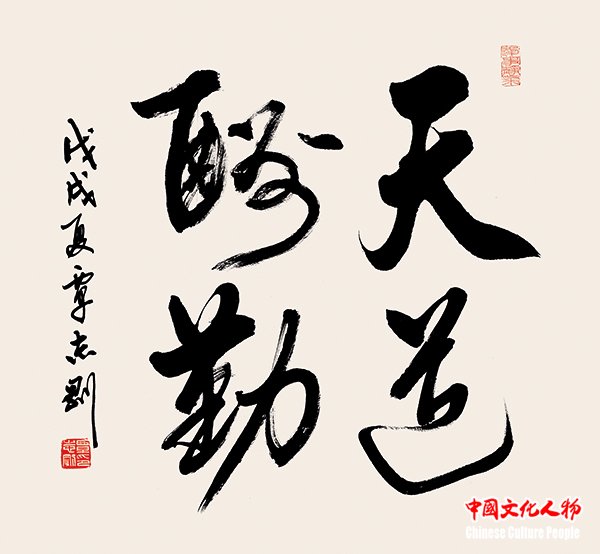 天道
酬勤
戊戌夏覃志剛
中國文化人物
Chinese Culture People